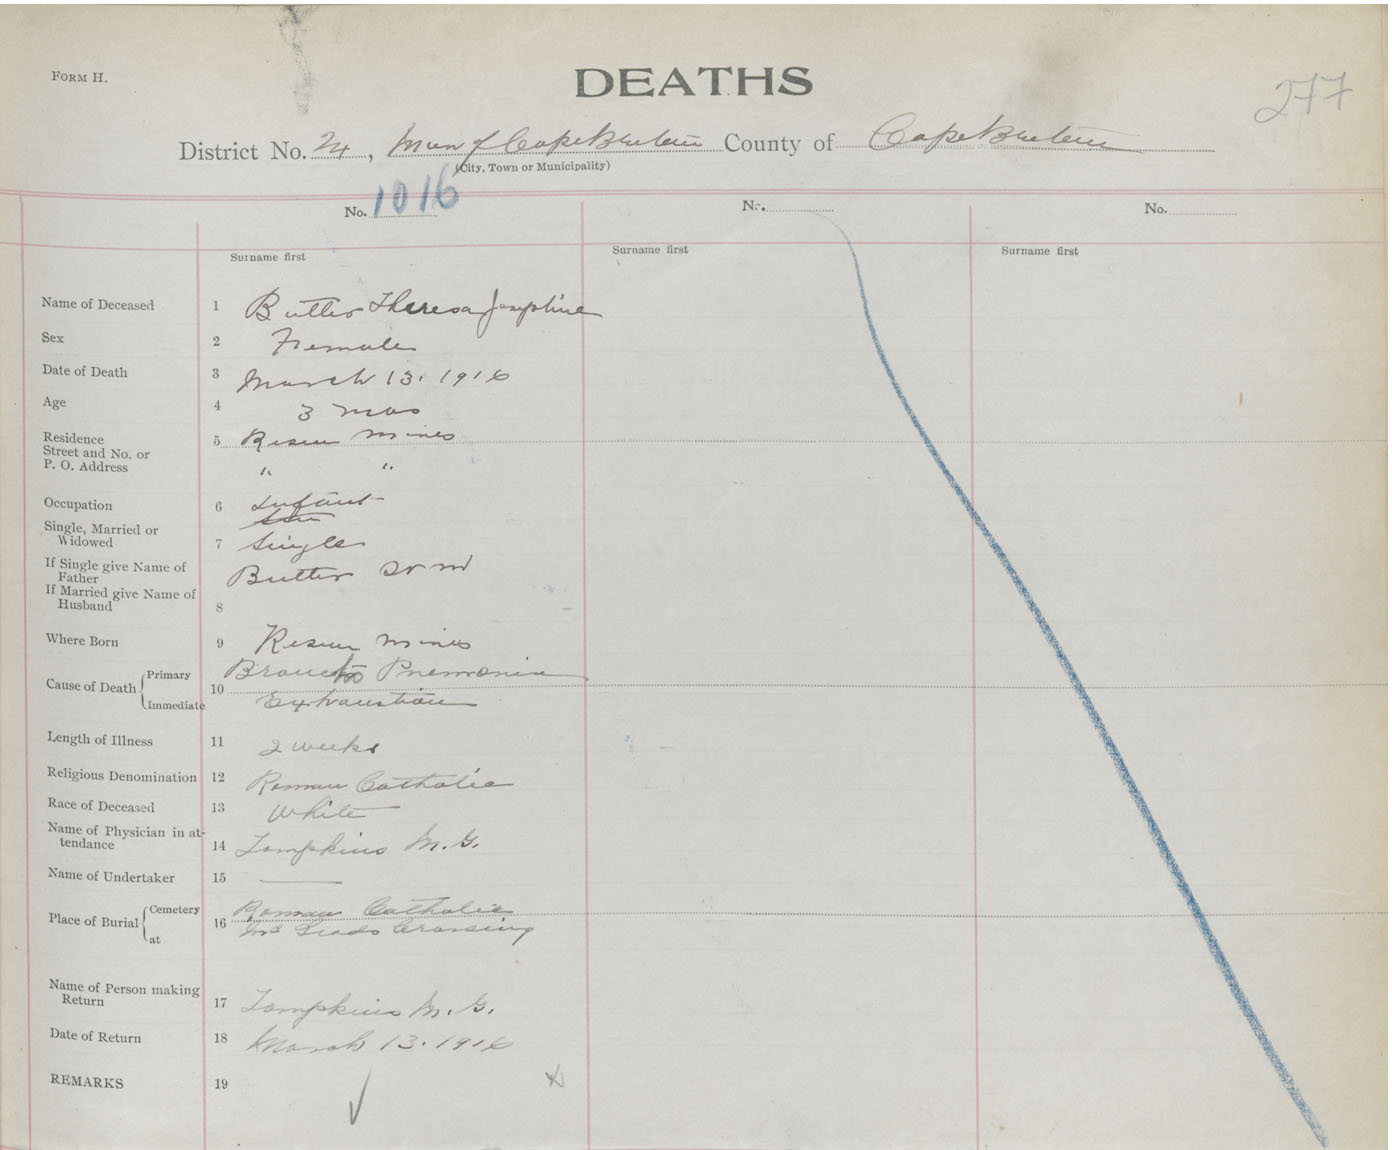 FORM H.
DEATHS
277
District No. 24, Mun of Cape Breton County of Cape Breton
(City, Town or Municipality)
No. 1016 No. No.
Surname first Surname first Surname first
Name of Deceased 1 Butler Theresa Josephine
Sex 2 Female
Date of Death 3 March 13. 1916
Age 4 3 mos
Residence 5 Reserve Mines
Street and No. or
P. O. Address " "
Occupation 6 Infant
Single, Married or
Widowed 7 Single
If Single give Name of
Father Butler
If Married give Name of
Husband 8
Where Born 9 Reserve Mines
Cause of Death Primary 10 Broncho Pnemonia
Immediate Exhaustion
Length of Illness 11 2 weeks
Religious Denomination 12 Roman Catholic
Race of Deceased 13 White
Name of Physician in at-
tendance 14 Tompkins M. G.
Name of Undertaker 15
Place of Burial Cemetery 16 Roman Catholic
at Crossing
Name of Person making
Return 17 Tompkins M. G.
Date of Return 18 March 13. 1916
REMARKS 19